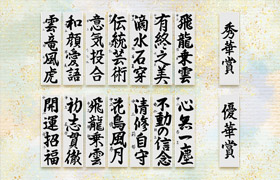 秀華賞
飛龍乗雲
有終之美
滴水石穿
伝統芸術
意気投合
和顔愛語
雲竜風虎
優華賞
心無一塵
不動の信念
清修自守
花鳥風月
飛龍乗雲
初志貫徹
開運招福